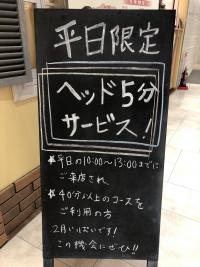 平日限定
ヘッド5分
サービス!
★平日の10:00〜13:00までに
ご来店され
★40分以上のコースを
ご利用の方
2月いっぱいです!
この機会にぜひ!!